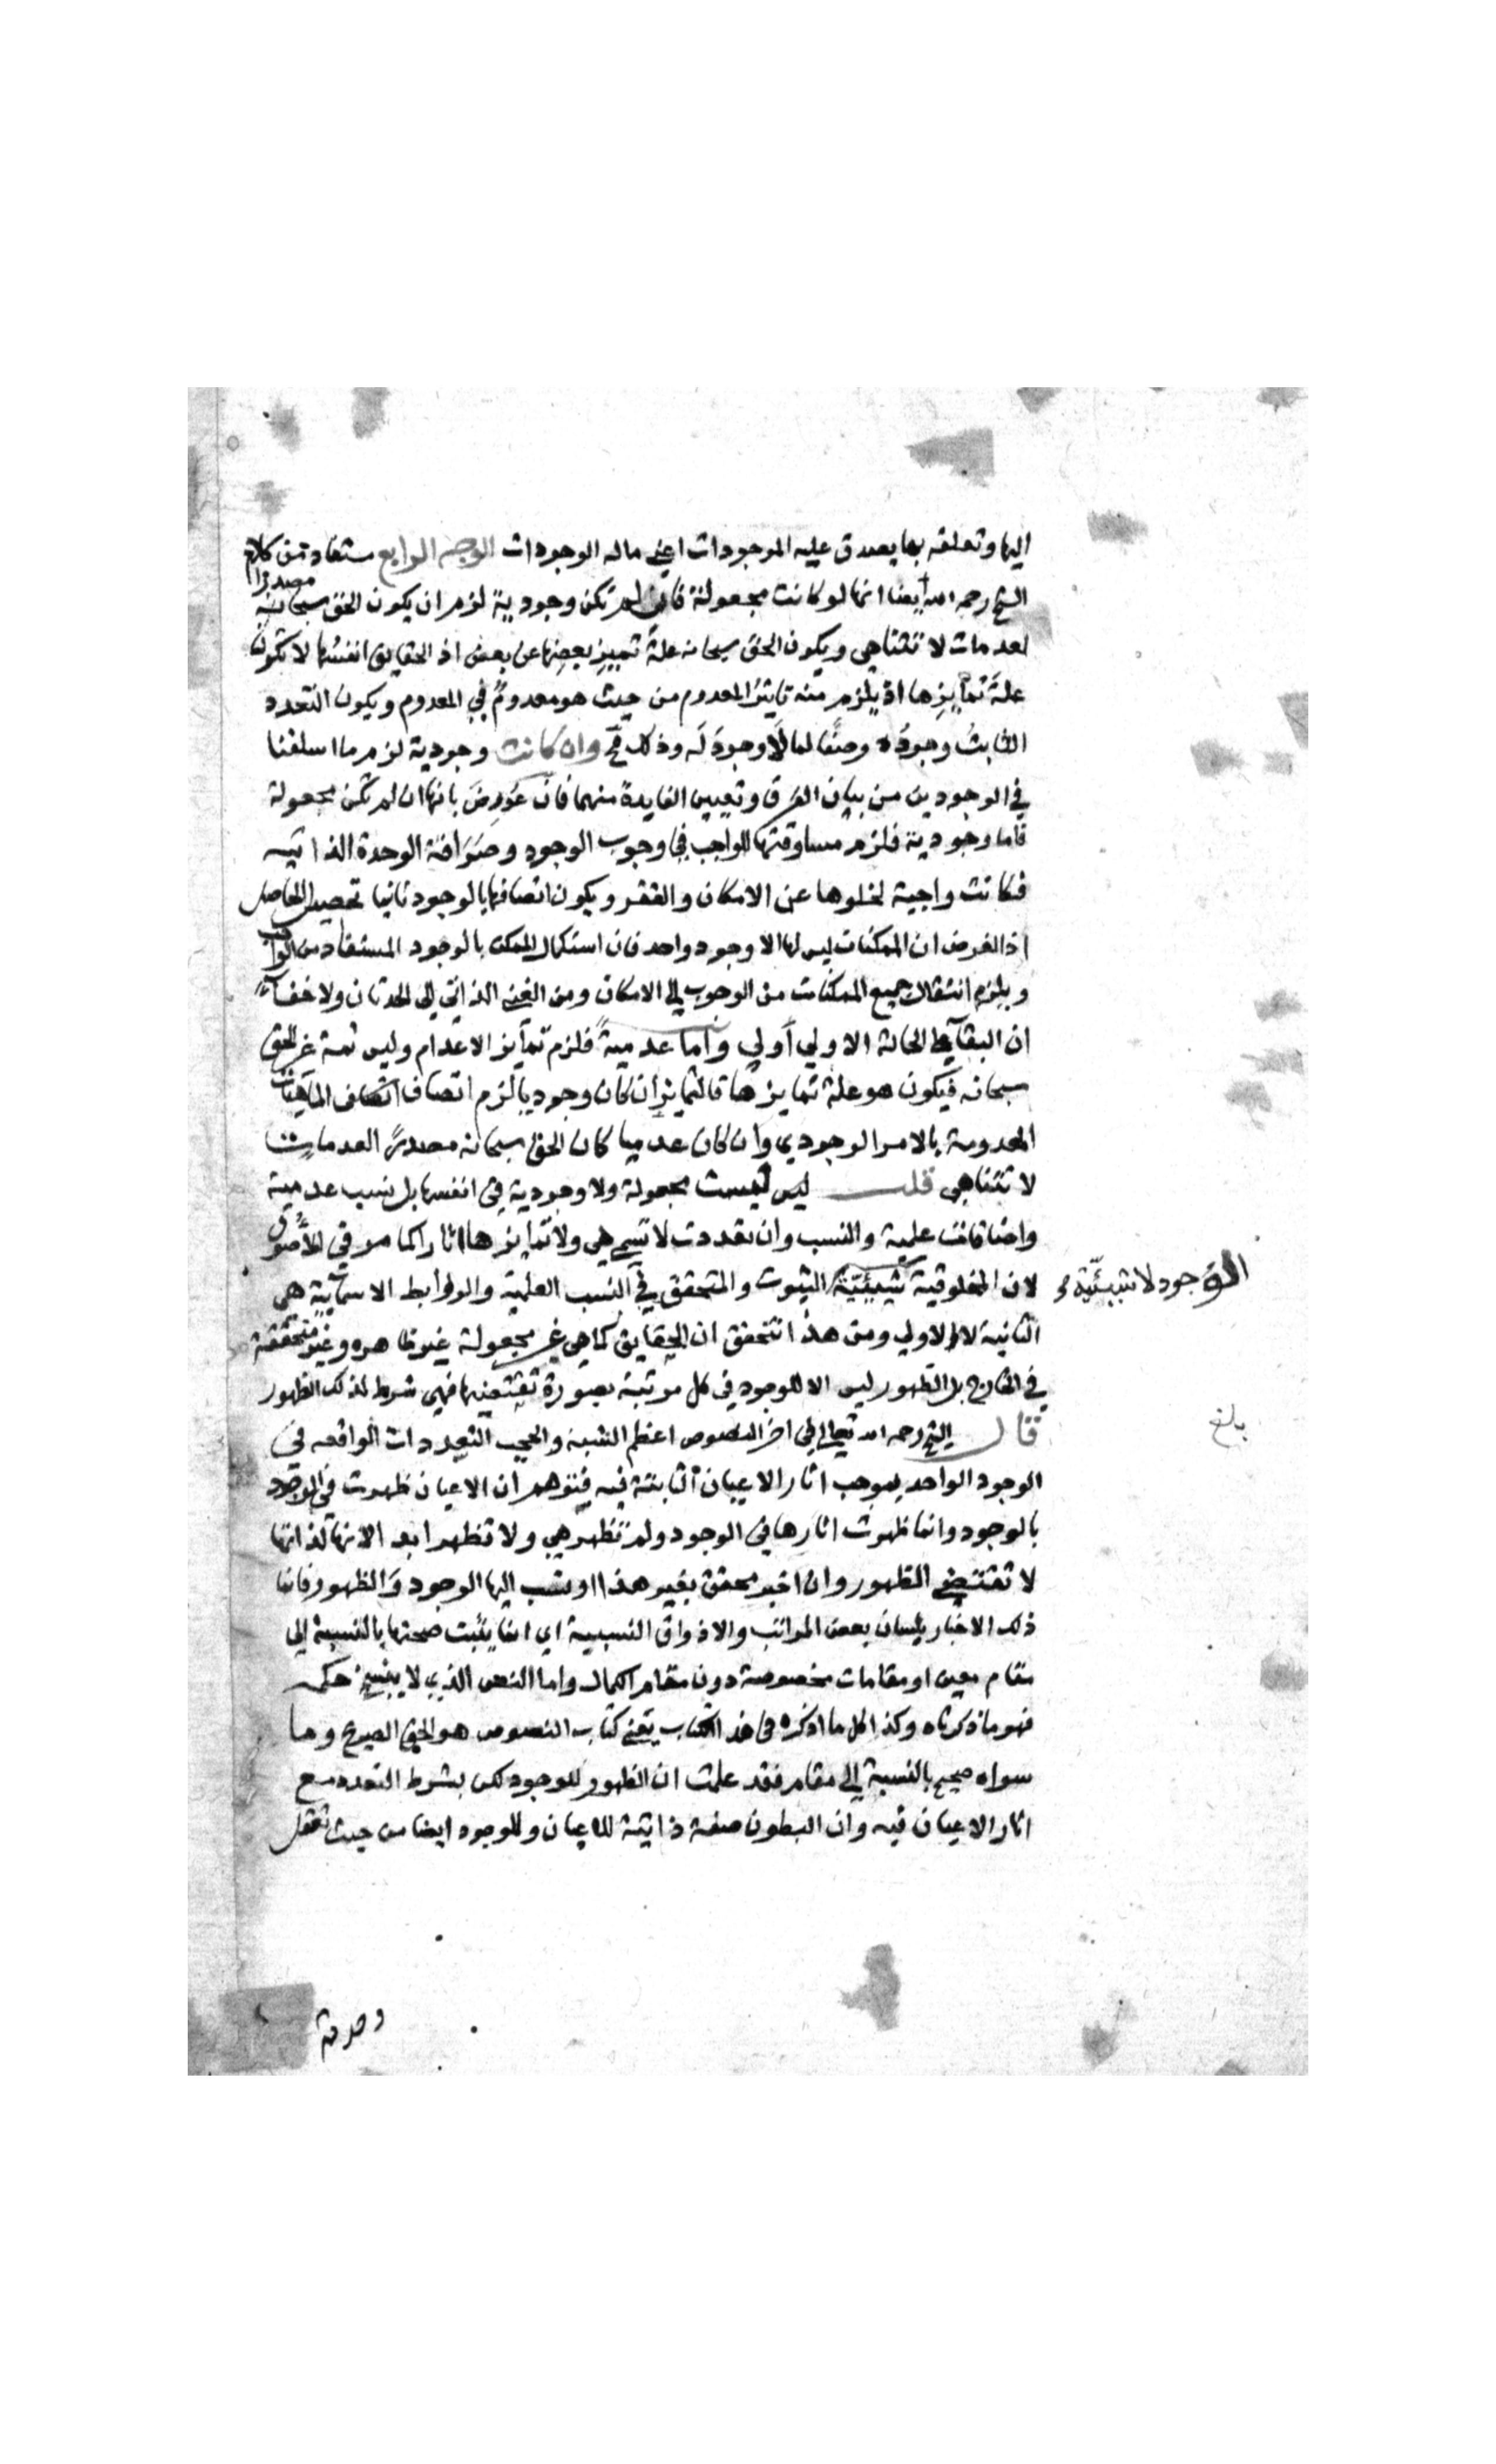 اليها وتعلقه بما يصدق عليه الموجودات اعني ماله الوجودات الوجه الرابع مستفاد من كلام
الشيخ رحمه الله ايضا انها لو كانت مجعولة فان لم تكن وجودية لزم ان يكون الحق سبحانه مصدرا
لعدمات لا تتناهي ويكون الحق سبحانه علة تمييز بعضها عن بعض اذ الحقايق انفسها لا تكون
علة تمايزها اذ يلزم منه تاثير المعدوم من حيث هو معدوم في المعدوم ويكون التعدد
الثابت وجوده وصفا لما لا وجود له وذلك مح وان كانت وجودية لزم ما اسلفنا
في الوجودين من بيان الفرق وتعيين الفايدة منهما فان عورض بانها ان لم تكن مجعولة
فاما وجودية فلزم مساوقتها للواجب في وجوب الوجود وصرافة الوحدة الذاتيه
فكانت واجبة لخلوها عن الامكان والفقر ويكون اتصافها بالوجود ثانيا تحصيل الحاصل
اذ الفرض ان الممكنات ليس لها الا وجود واحد فان استكمال الممكن بالوجود المستفاد من الواجب
ويلزم انتقال جميع الممكنات من الوجوب الي الامكان ومن الغني الذاتي الي الحدثان ولا خفاء
ان البقاء علي الحالة الاولي اولي واما عدمية فلزم تمايز الاعدام وليس ثمة غير الحق
سبحانه فيكون هو علة تمايزها فالتمايز ان كان وجوديا لزم اتصاف الماهيات
المعدومة بالامر الوجودي وان كان عدميا كان الحق سبحانه مصدر العدمات
لا تتناهي قلت ليس ليست مجعولة ولا وجودية في انفسها بل نسب عدمية
واضافات علمية والنسب وان تعددت لا تسم هي ولا تمايزها اثارا كما مر في الاصول
لان المخلوقية شيئيّة الثبوت والتحقق في النسب العلمية والروابط الاسمائية هي
الوجود لا شيئيّة
الثانية لا الاولي ومن هذا تتحقق ان الحقايق كما هي غير مجعولة غير ظاهره وغير متحققة
في الخارج بل الظهور ليس الا للوجود في كل مرتبة بصورة تقتضيها فهي شرط لذلك الظهور
قال الشيخ رحمه الله تعالي في اخر النصوص اعظم الشبه والحجب التعددات الواقعه في
بلغ
الوجود الواحد بموجب اثار الاعيان الثابتة فيه فيتوهم ان الاعيان ظهرت في الوجود
بالوجود وانما ظهرت اثارها في الوجود ولم تظهر هي ولا تظهر ابدا لانها لذاتها
لا تقتضي الظهور وان اخبر محقق بغير هذا او نسب اليها الوجود والظهور فانما
ذلك الاخبار بلسان بعض المراتب والاذواق النسبية اي انما يثبت صحتها بالنسبة الي
مقام معين او مقامات مخصوصة دون مقام الكمال واما النص الذي لا ينسخ حكمه
فهو ما ذكرناه وكذا كل ما اذكره في هذا الكتاب يعني كتاب النصوص هو الحق الصريح وما
سواه صحيح بالنسبة الي مقام فقد علمت ان الظهور للوجود لكن بشرط التعدد مع
اثار الاعيان فيه وان البطون صفة ذاتية للاعيان وللوجود ايضا من حيث تعقل
وحدته